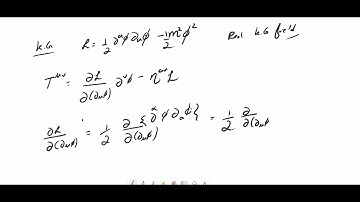 K.G   ℒ = 1/2 ∂^μ φ ∂_μ φ - 1/2 m² φ²   Real K.G field
T^{μν} = ∂ℒ/∂(∂_μ φ) ∂^ν φ - η^{μν} ℒ
∂ℒ/∂(∂_μ φ) = 1/2 ∂/∂(∂_μ φ) {∂^α φ ∂_α φ} = 1/2 ∂/∂(∂_μ φ